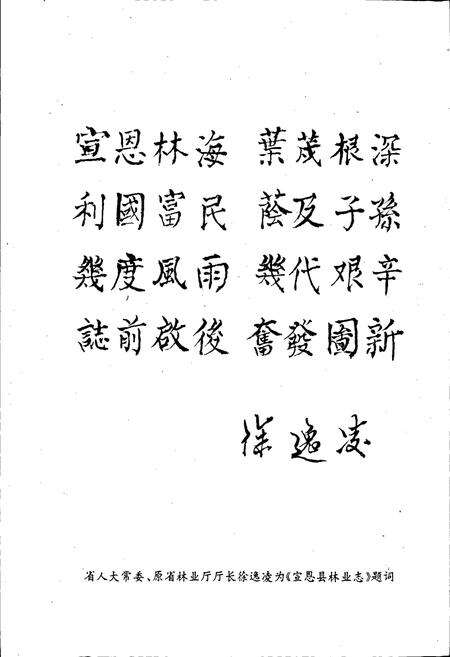 宣恩林海 葉茂根深
利國富民 蔭及子孫
幾度風雨 幾代艰辛
誌前啟後 奮發圖新
徐逸凌
省人大常委、原省林业厅厅长徐逸凌为《宣恩县林业志》题词